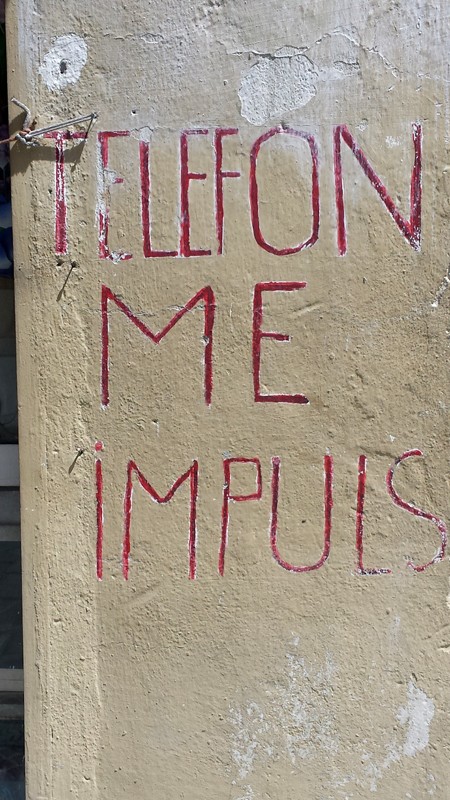 TELEFON
ME
IMPULS